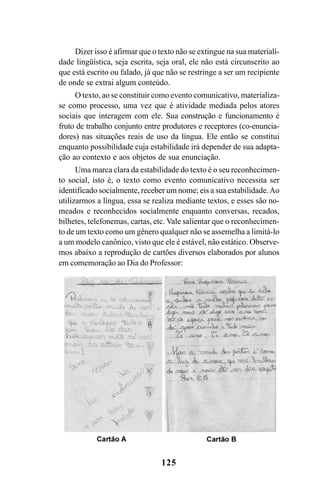 Dizer isso é afirmar que o texto não se extingue na sua materiali-
dade lingüística, seja escrita, seja oral, ele não está circunscrito ao
que está escrito ou falado, já que não se restringe a ser um recipiente
de onde se extrai algum conteúdo.
O texto, ao se constituir como evento comunicativo, materializa-
se como processo, uma vez que é atividade mediada pelos atores
sociais que interagem com ele. Sua construção e funcionamento é
fruto de trabalho conjunto entre produtores e receptores (co-enuncia-
dores) nas situações reais de uso da língua. Ele então se constitui
enquanto possibilidade cuja estabilidade irá depender de sua adapta-
ção ao contexto e aos objetos de sua enunciação.
Uma marca clara da estabilidade do texto é o seu reconhecimen-
to social, isto é, o texto como evento comunicativo necessita ser
identificado socialmente, receber um nome; eis a sua estabilidade. Ao
utilizarmos a língua, essa se realiza mediante textos, e esses são no-
meados e reconhecidos socialmente enquanto conversas, recados,
bilhetes, telefonemas, cartas, etc. Vale salientar que o reconhecimen-
to de um texto como um gênero qualquer não se assemelha a limitá-lo
a um modelo canônico, visto que ele é estável, não estático. Observe-
mos abaixo a reprodução de cartões diversos elaborados por alunos
em comemoração ao Dia do Professor:
que a
Te amo, Te amo, Te amo
Mas a dos justos é como
a luz da aurora, que vai
de mais e mais até ser dia
Cartão A
Cartão B
125